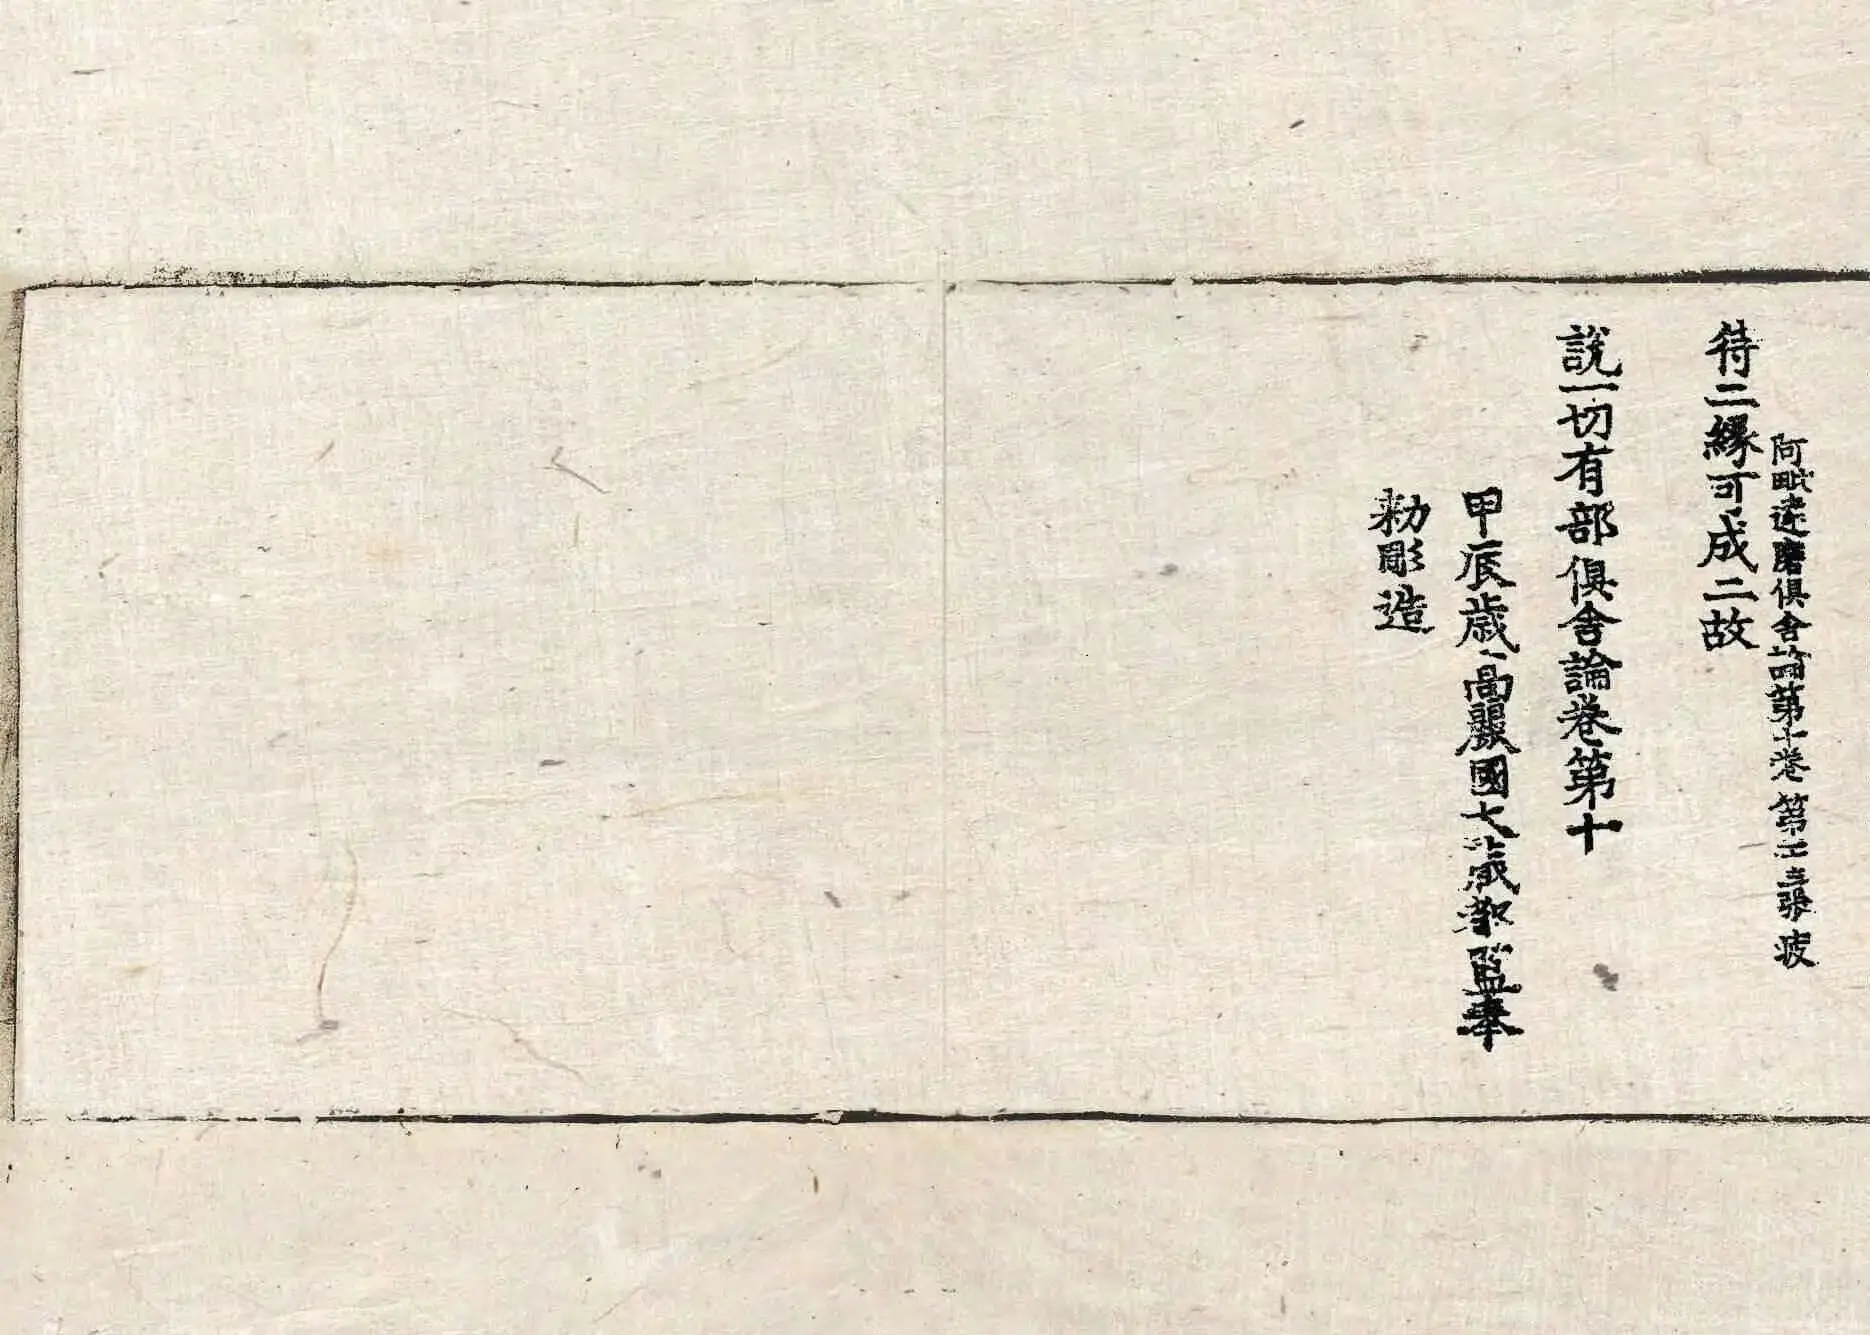 阿毗達磨俱舍論第十卷 第二十三張 疲
待二緣可成二故
說一切有部俱舍論卷第十
甲辰歲高麗國大藏都監奉
勑彫造